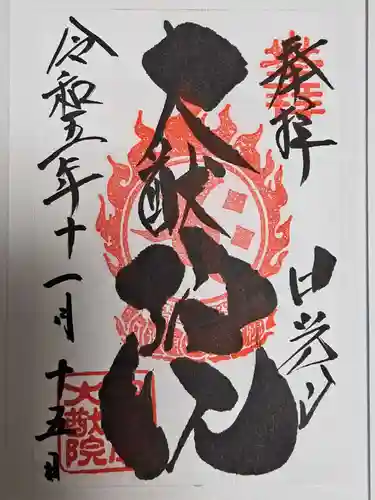 奉拝
日光山
大猷
令和五年十一月十五日
大猷院